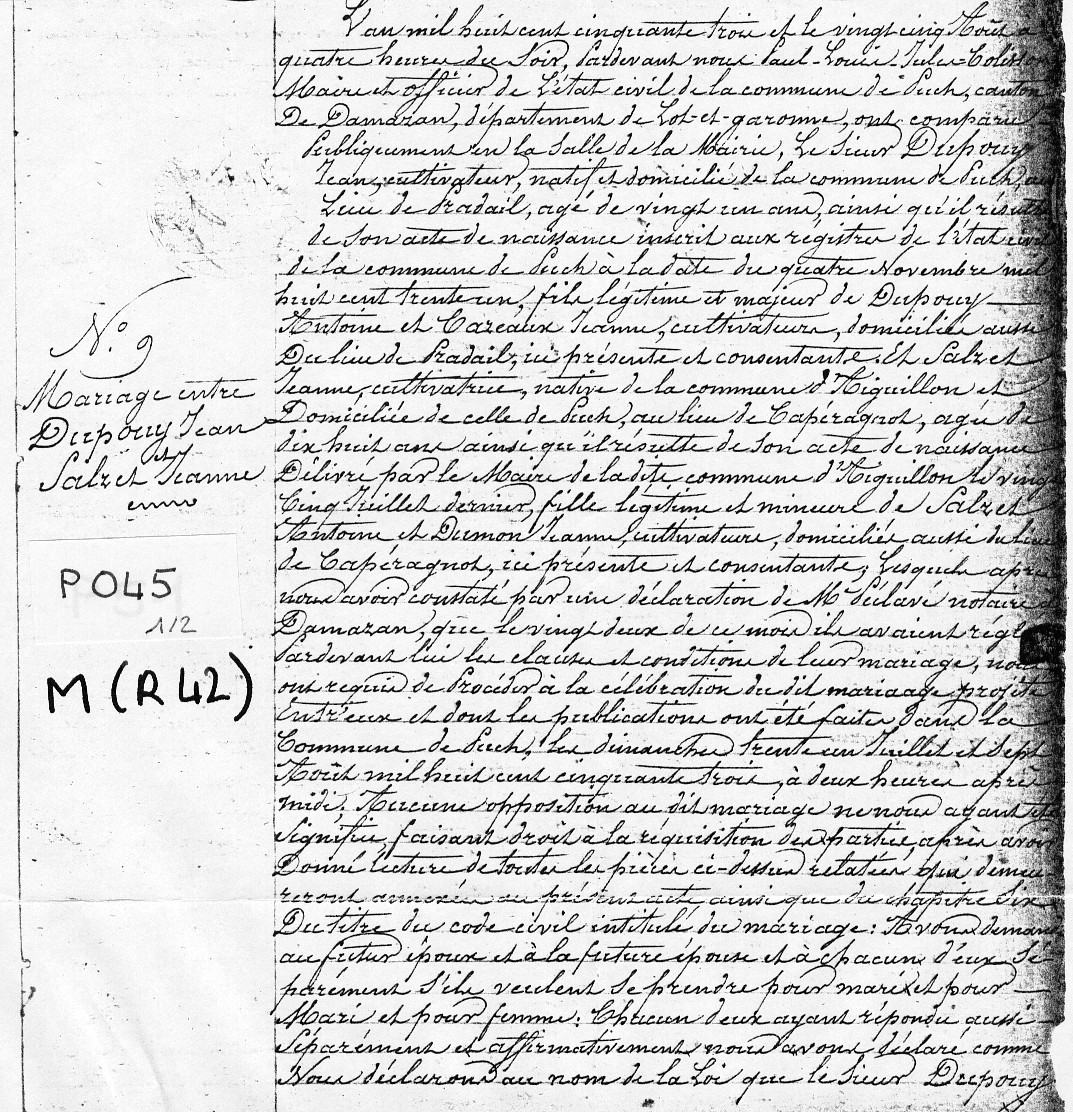 L'an mil huit cent cinquante trois et le vingt cinq Août à
quatre heures du Soir, Pardevant nous Paul-Louis-Jules-
Maire et officier de L'état civil de la commune de Puch, canton
De Damazan, département de Lot-et-garonne, ont comparu
Publiquement en la Salle de la Mairie, Le Sieur Dupouy
Jean, cultivateur, natif et domicilié de la commune de Puch, au
Lieu de Pradail, agé de vingt un ans, ainsi qu'il résulte
de Son acte de naissance inscrit aux régistres de l'état civil
de la commune de Puch à la date du quatre Novembre mil
huit cent trente un, fils légitime et majeur de Dupouy
Antoine et Cazeaux Jeanne, cultivateurs, domiciliés aussi
Du lieu de Pradail, ici présents et consentants. Et Salzet
Jeanne, cultivatrice, native de la commune d'Aiguillon et
Domiciliée de celle de Puch, au lieu de Caperagnot, agée de
dix huit ans ainsi qu'il résulte de Son acte de naissance
Délivré par le Maire de la dite commune d'Aiguillon le vingt
Cinq Juillet dernier, fille légitime et mineure de Salzet
Antoine et Dumon Jeanne, cultivateurs, domiciliés aussi du lieu
de Capéragnot, ici présents et consentants; Lesquels après
nous avoir constaté par une déclaration de Mr Déclavé notaire à
Damazan, que le vingt deux de ce mois ils avaient réglé
Pardevant lui les clauses et conditions de leur mariage, nous
ont requis de Procéder à la célébration du dit mariaage projété
Entr'eux et dont les publications ont été faites dans la
Commune de Puch, les dimanches trente un Juillet et Sept
Août mil huit cent cinquante trois, à deux heures après
midi; Aucune opposition au dit mariage ne nous ayant été
Signifiée, faisant droit à la réquisition des parties, après avoir
Donné lécture de toutes les pièces ci-dessus relatées, qui demeu-
reront annexées au présent acte ainsi que du chapitre Six
Du titre du code civil intitulé du mariage: Avons demandé
au futur époux et à la future épouse et à chacun d'eux Sé-
parément S'ils veulent Se prendre pour maris et pour
Mari et pour femme: Chacun deux ayant répondu aussi
Séparément et affirmativement nous avons déclaré comme
Nous déclarons au nom de la Loi que le Sieur Dupouy
N.o 9
Mariage entre
Dupouy Jean
et
Salzet Jeanne
P 045
1/2
M (R 42)